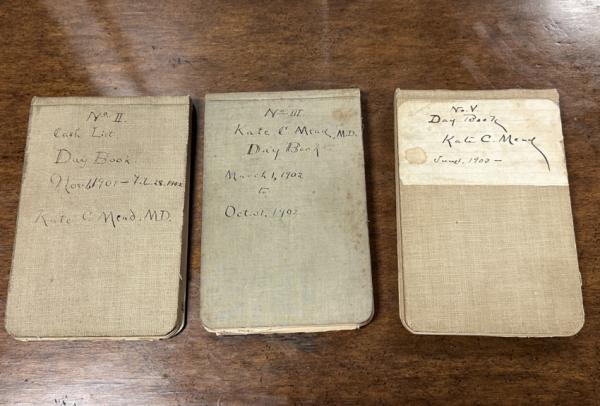 No. II.
Cash List
Day Book
Nov. 1, 1901 - Feb. 28, 1902
Kate C. Mead, M.D.
No. III.
Kate C Mead, M.D.
Day Book
March 1, 1902
to
Oct. 31, 1902
No. V.
Day Book
Kate C. Mead
June 1, 1903 -